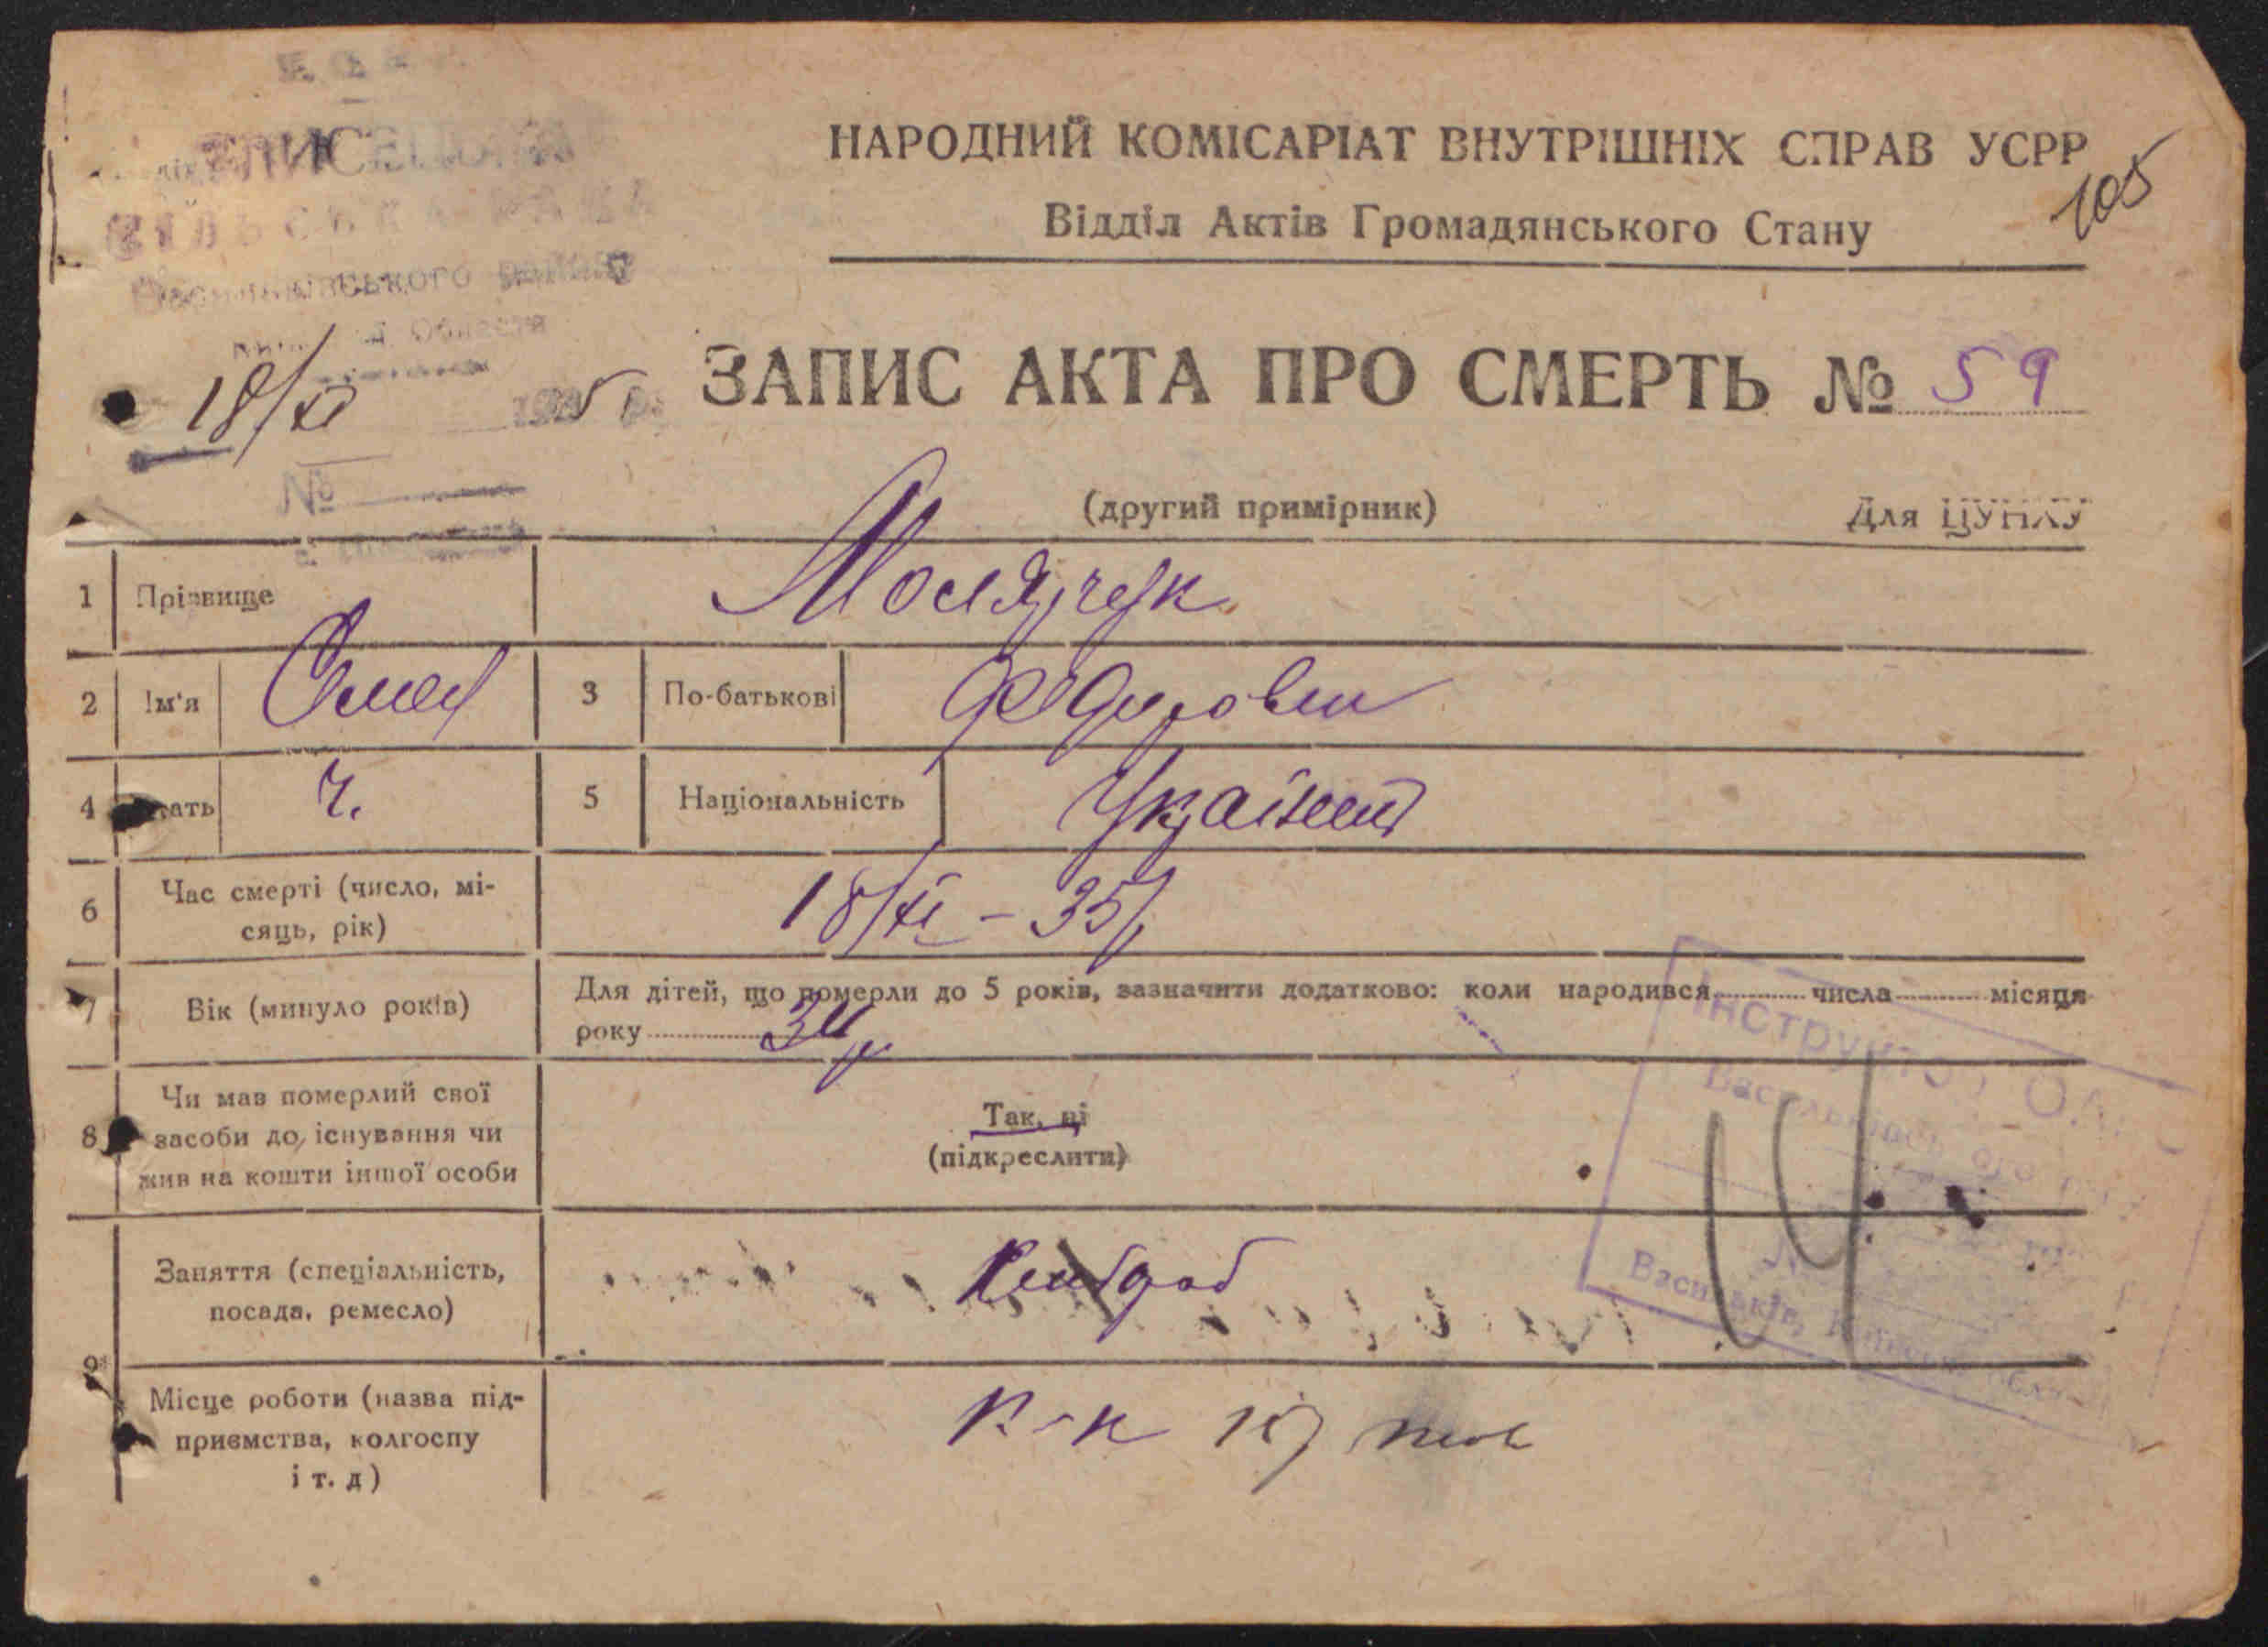 НАРОДНИЙ КОМІСАРІАТ ВНУТРІШНІХ СПРАВ УСРР
105
Відділ Актів Громадянського Стану
СІЛЬСЬКА РАДА
Васильківського району
Області
18/XI 1935 р.
№
ЗАПИС АКТА ПРО СМЕРТЬ № 59
(другий примірник)
Для ЦУНХУ
1 Прізвище
2 Ім'я Семен 3 По-батькові Федорович
4 Стать Ч. 5 Національність Українець
6 Час смерті (число, мі-
сяць, рік) 18/XI – 35 р.
7 Вік (минуло років) Для дітей, що померли до 5 років, зазначити додатково: коли народився числа місяця
року
8 Чи мав померлий свої
засоби до існування чи
жив на кошти іншої особи
Так, ні
(підкреслити)
9 Заняття (спеціальність,
посада, ремесло)
Місце роботи (назва під-
приємства, колгоспу
і т. д)
Інструктор
Васильківського
Васильків, Київської обл.